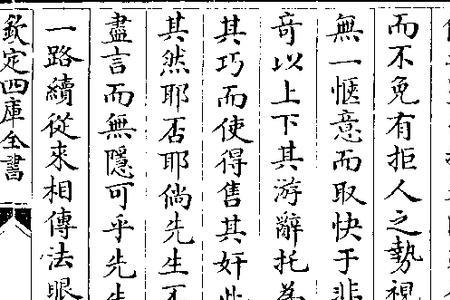 而不免有拒人之勢視
無一愜意而取快于悲
竒以上下其游辭托為
其巧而使得售其奸此
其然耶否耶倘先生不
盡言而無隱可乎先生
一路續從來相傳法眼
欽定四庫全書